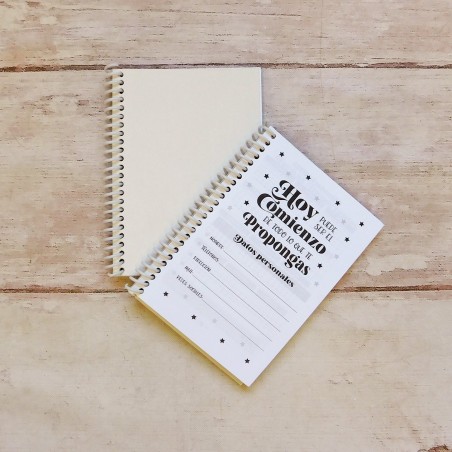 Hoy PUEDE
SER EL
Comienzo
DE TODO LO QUE TE
Propongas
Datos personales
NOMBRE
TELÉFONOS
DIRECCIÓN
MAIL
REDES SOCIALES